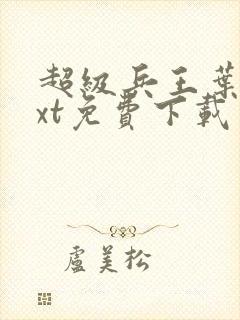 超級兵王葉
xt免費下載
盧美松